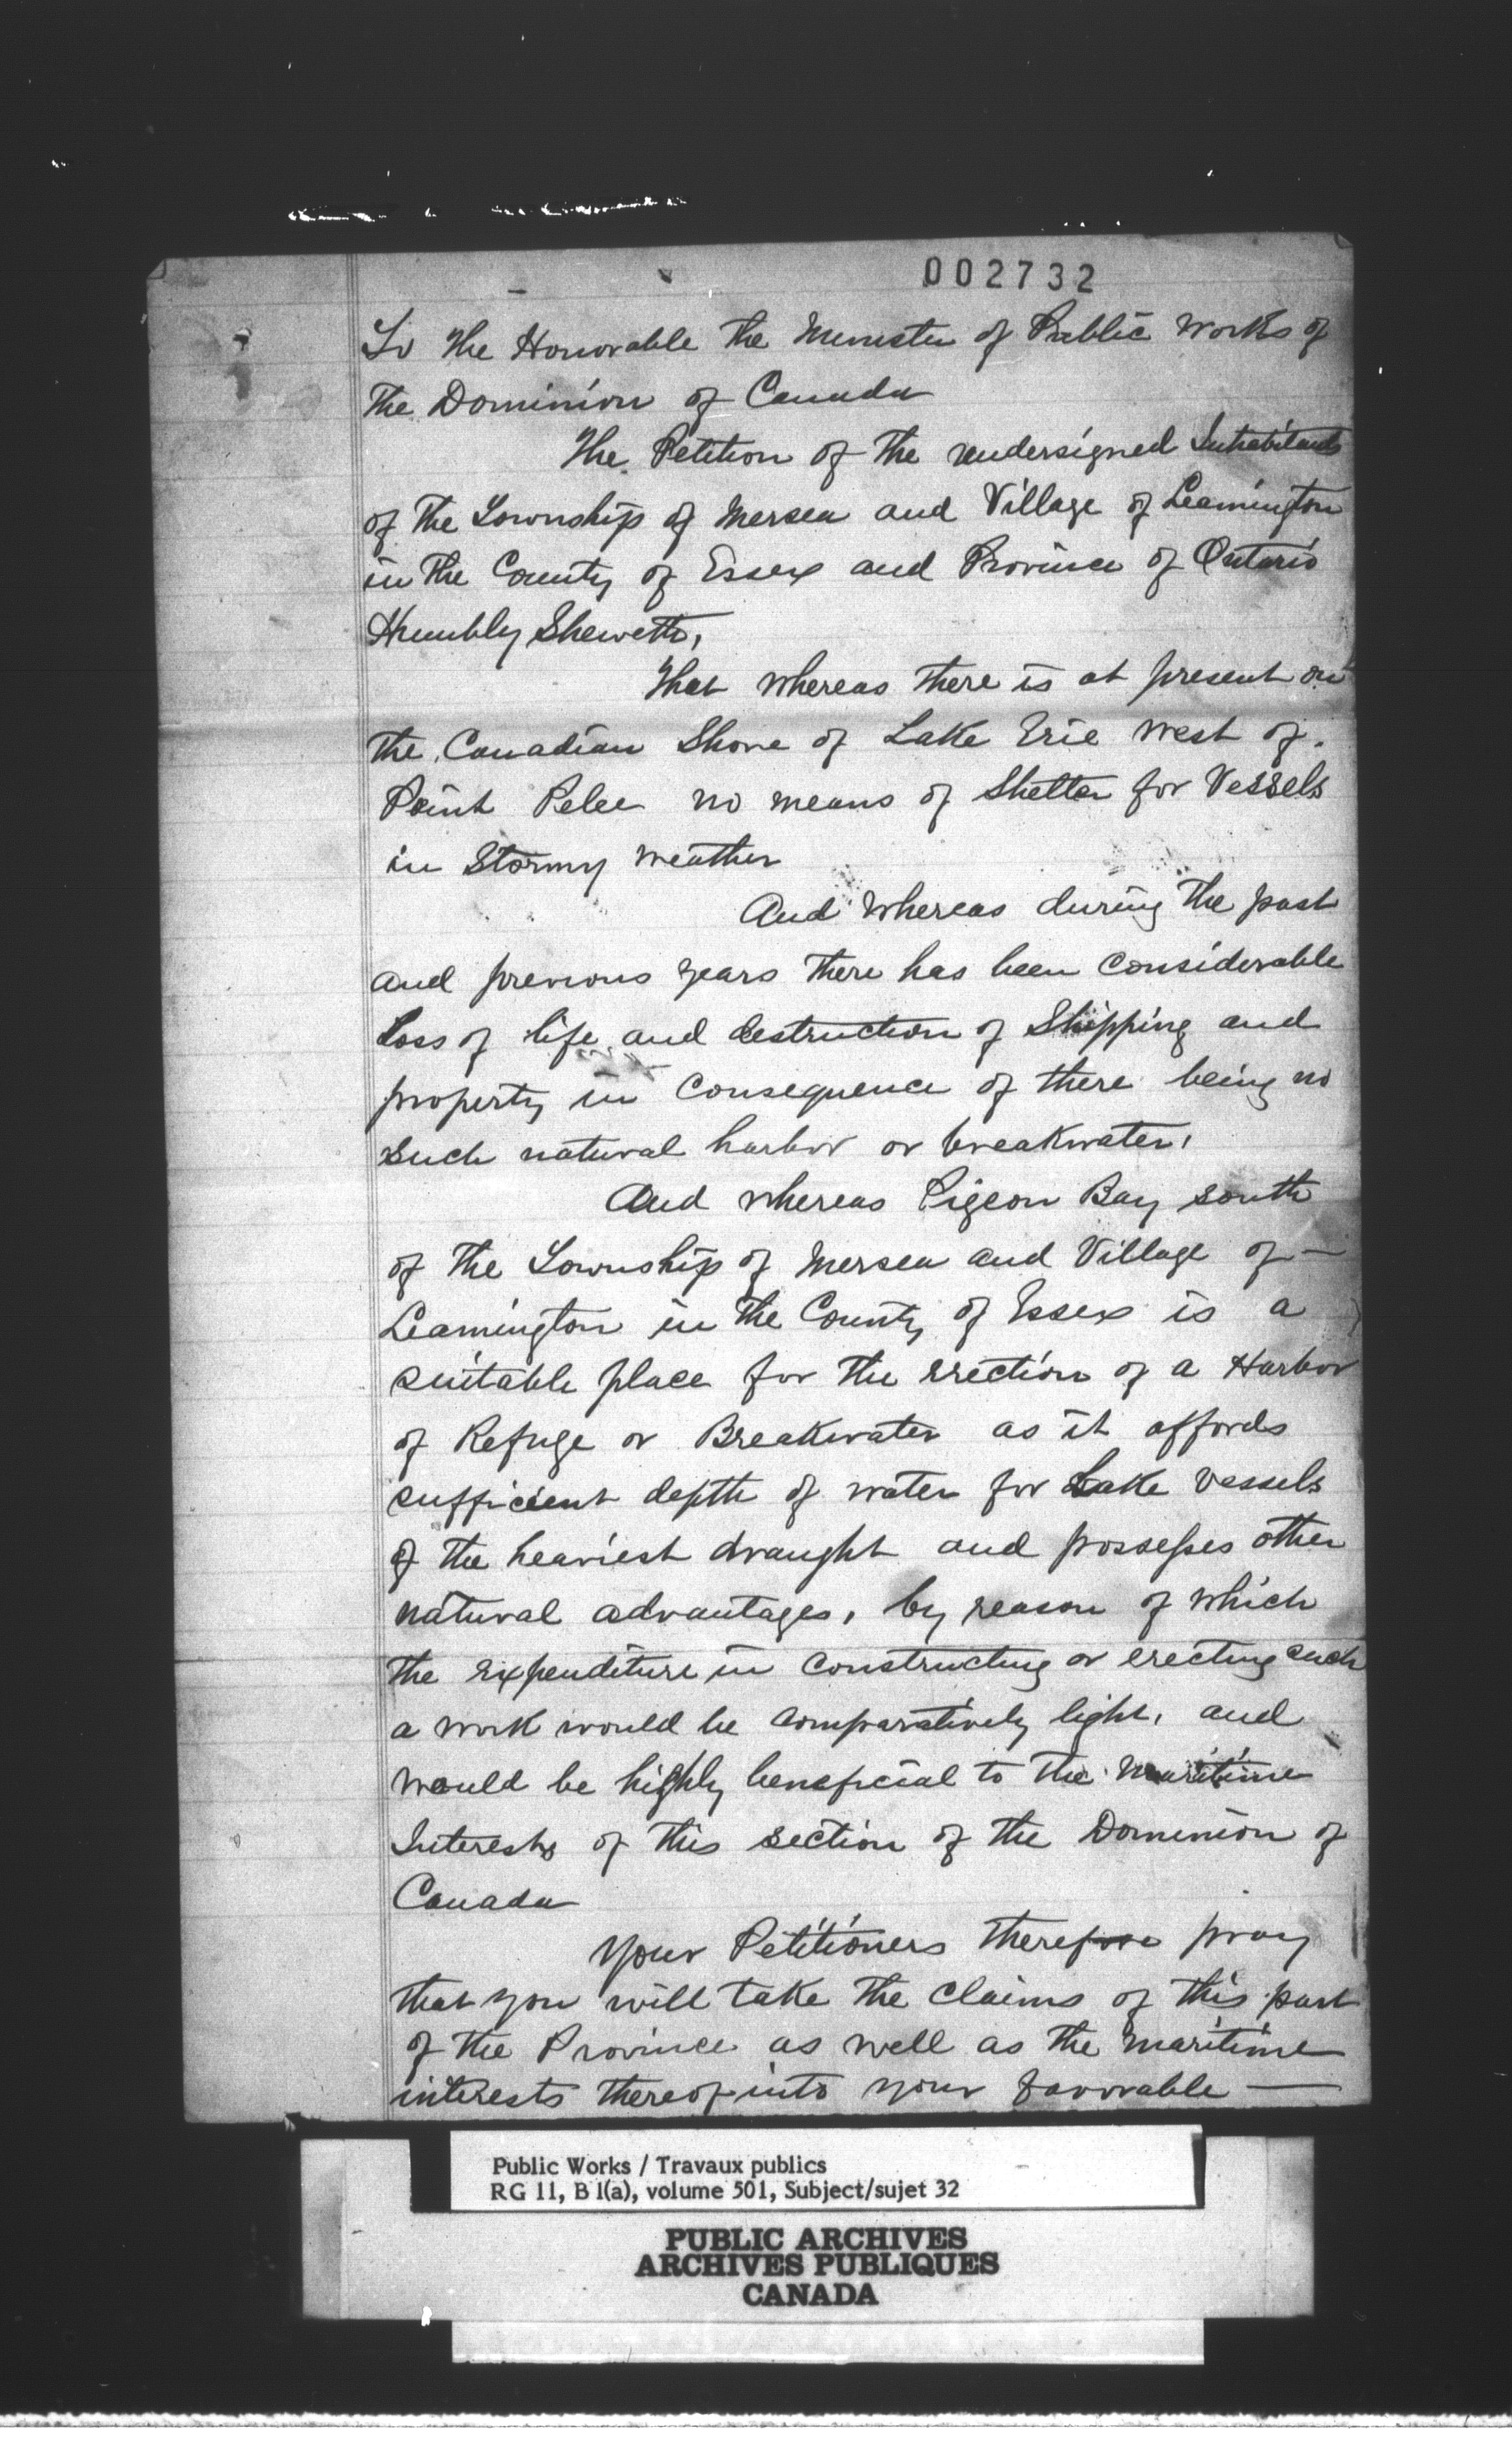 002732
To the Honorable the Minister of Public Works of
the Dominion of Canada
The Petition of the undersigned Inhabitants
of the Township of Mersea and Village of Leamington
in the County of Essex and Province of Ontario
Humbly Sheweth,
That whereas there is at present on
the Canadian Shore of Lake Erie west of
Point Pelee no means of Shelter for Vessels
in Stormy weather
And whereas during the past
and previous years there has been considerable
Loss of life and destruction of Shipping and
property in consequence of there being no
such natural harbor or breakwater,
And whereas Pigeon Bay south
of the Township of Mersea and Village of —
Leamington in the County of Essex is a
suitable place for the erection of a Harbor
of Refuge or Breakwater as it affords
sufficient depth of water for Lake vessels
of the heaviest draught and possesses other
natural advantages, by reason of which
the expenditure in constructing or erecting such
a work would be comparatively light, and
would be highly beneficial to the Maritime
Interests of this section of the Dominion of
Canada
Your Petitioners therefore pray
that you will take the claims of this part
of the Province as well as the maritime
interests thereof into your favorable —
Public Works / Travaux publics
RG 11, B 1(a), volume 501, Subject/sujet 32
PUBLIC ARCHIVES
ARCHIVES PUBLIQUES
CANADA